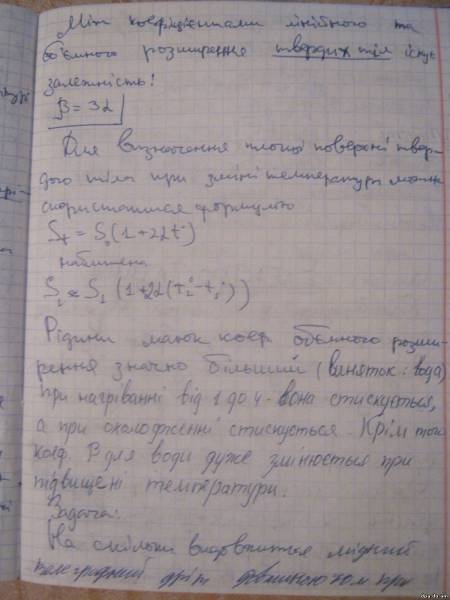 Між коефіцієнтами лінійного та
об'ємного розширення твердих тіл існує
залежність!
β = 3α
Для визначення площі поверхні твер-
дого тіла при зміні температури можна
скористатися формулою
Sₜ = S₀(1+2αt°)
наближена
S₂ ≈ S₁ (1+2α(t₂°-t₁°))
Рідини мають коеф. об'ємного розши-
рення значно більший (виняток: вода)
При нагріванні від 1 до 4 - вона стискується,
а при охолодженні стискується. Крім того
коеф. β для води дуже змінюється при
підвищені температури.
Задача:
На скільки видовжиться мідний
телеграфний дріт довжиною при